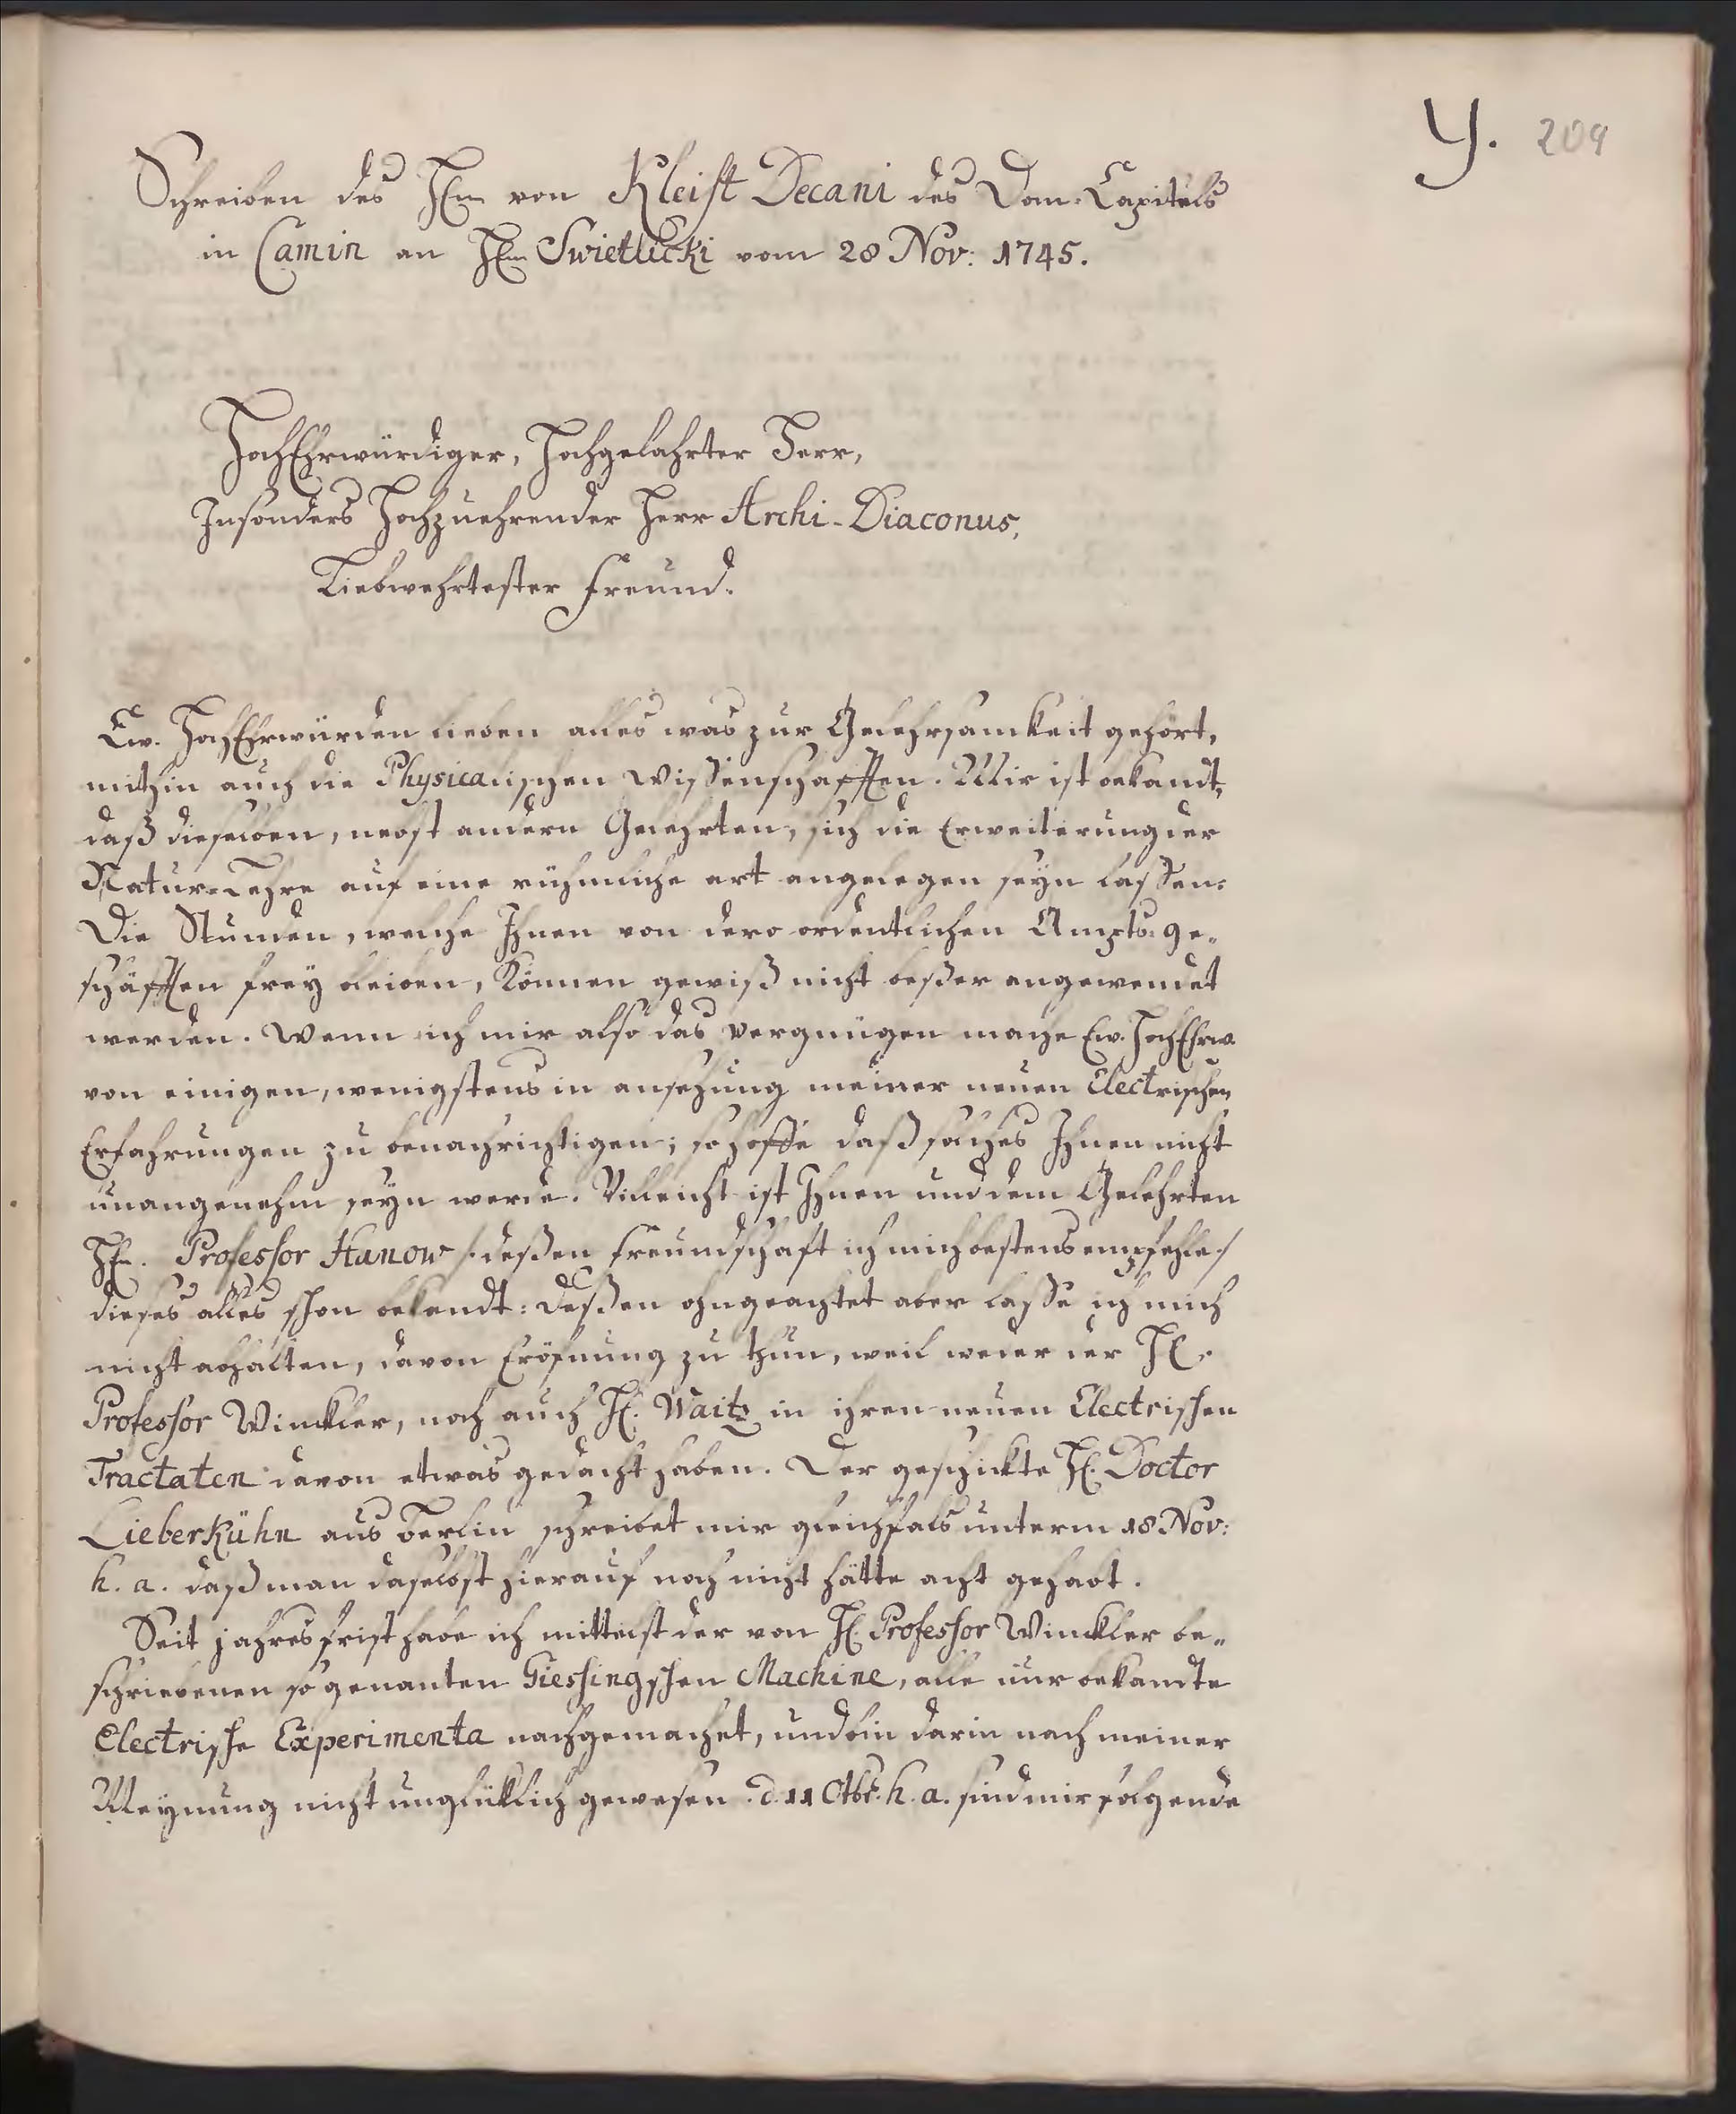 Y. 209
Schreiben des Hℓn von Kleist Decani des Dom-Capituls
in Camin an Hℓn Swietlicki vom 28 Nov: 1745.
HochEhrwürdiger, Hochgelahrter Herr,
Insonders Hochzuehrender Herr Archi-Diaconus,
Liebwehrtester Freund.
Ew. HochEhrwürden lieben alles was zur Gelehrsamkeit gehört,
mithin auch die Physicalischen Wissenschafften. Mir ist bekandt,
daß dieselben, nebst andern Gelehrten, sich die Erweiterung der
Natur-Lehre auf eine rühmliche art angelegen seyn lassen.
Die Stunden, welche Ihnen von dero ordentlichen Ampts-ge-
schäfften frey bleiben, können gewiß nicht beßer angewendet
werden. Wenn ich mir also das Vergnügen mache Ew. HochEhrw.
von einigen, wenigstens in ansehung meiner neuen Electrischen
Erfahrungen zu benachrichtigen; so hoffe daß solches Ihnen nicht
unangenehm seyn werde. Villeicht ist Ihnen und dem Gelehrten
Hn. Professor Hanow /: deßen Freundschaft ich mich bestens empfehle :/
dieses alles schon bekandt: Deßen ohngeachtet aber lasse ich mich
nicht abhalten, davon Eröfnung zu thun, weil weder der Hℓ.
Professor Winckler, noch auch Hℓ. Waitz in ihren neuen Electrischen
Tractaten davon etwas gedacht haben. Der geschickte Hℓ. Doctor
Lieberkühn aus Berlin schreibet mir gleichfals unterm 18 Nov:
h. a. daß man daselbst hierauf noch nicht hätte acht gehabt.
Seit jahres frist habe ich mittelst der von Hℓ. Professor Winckler be-
schriebenen so genanten Giessingschen Machine, alle nur bekandte
Electrische Experimenta nachgemachet, und bin darin nach meiner
Meynung nicht unglüklich gewesen. d. 11 Octbr. h. a. sind mir folgende